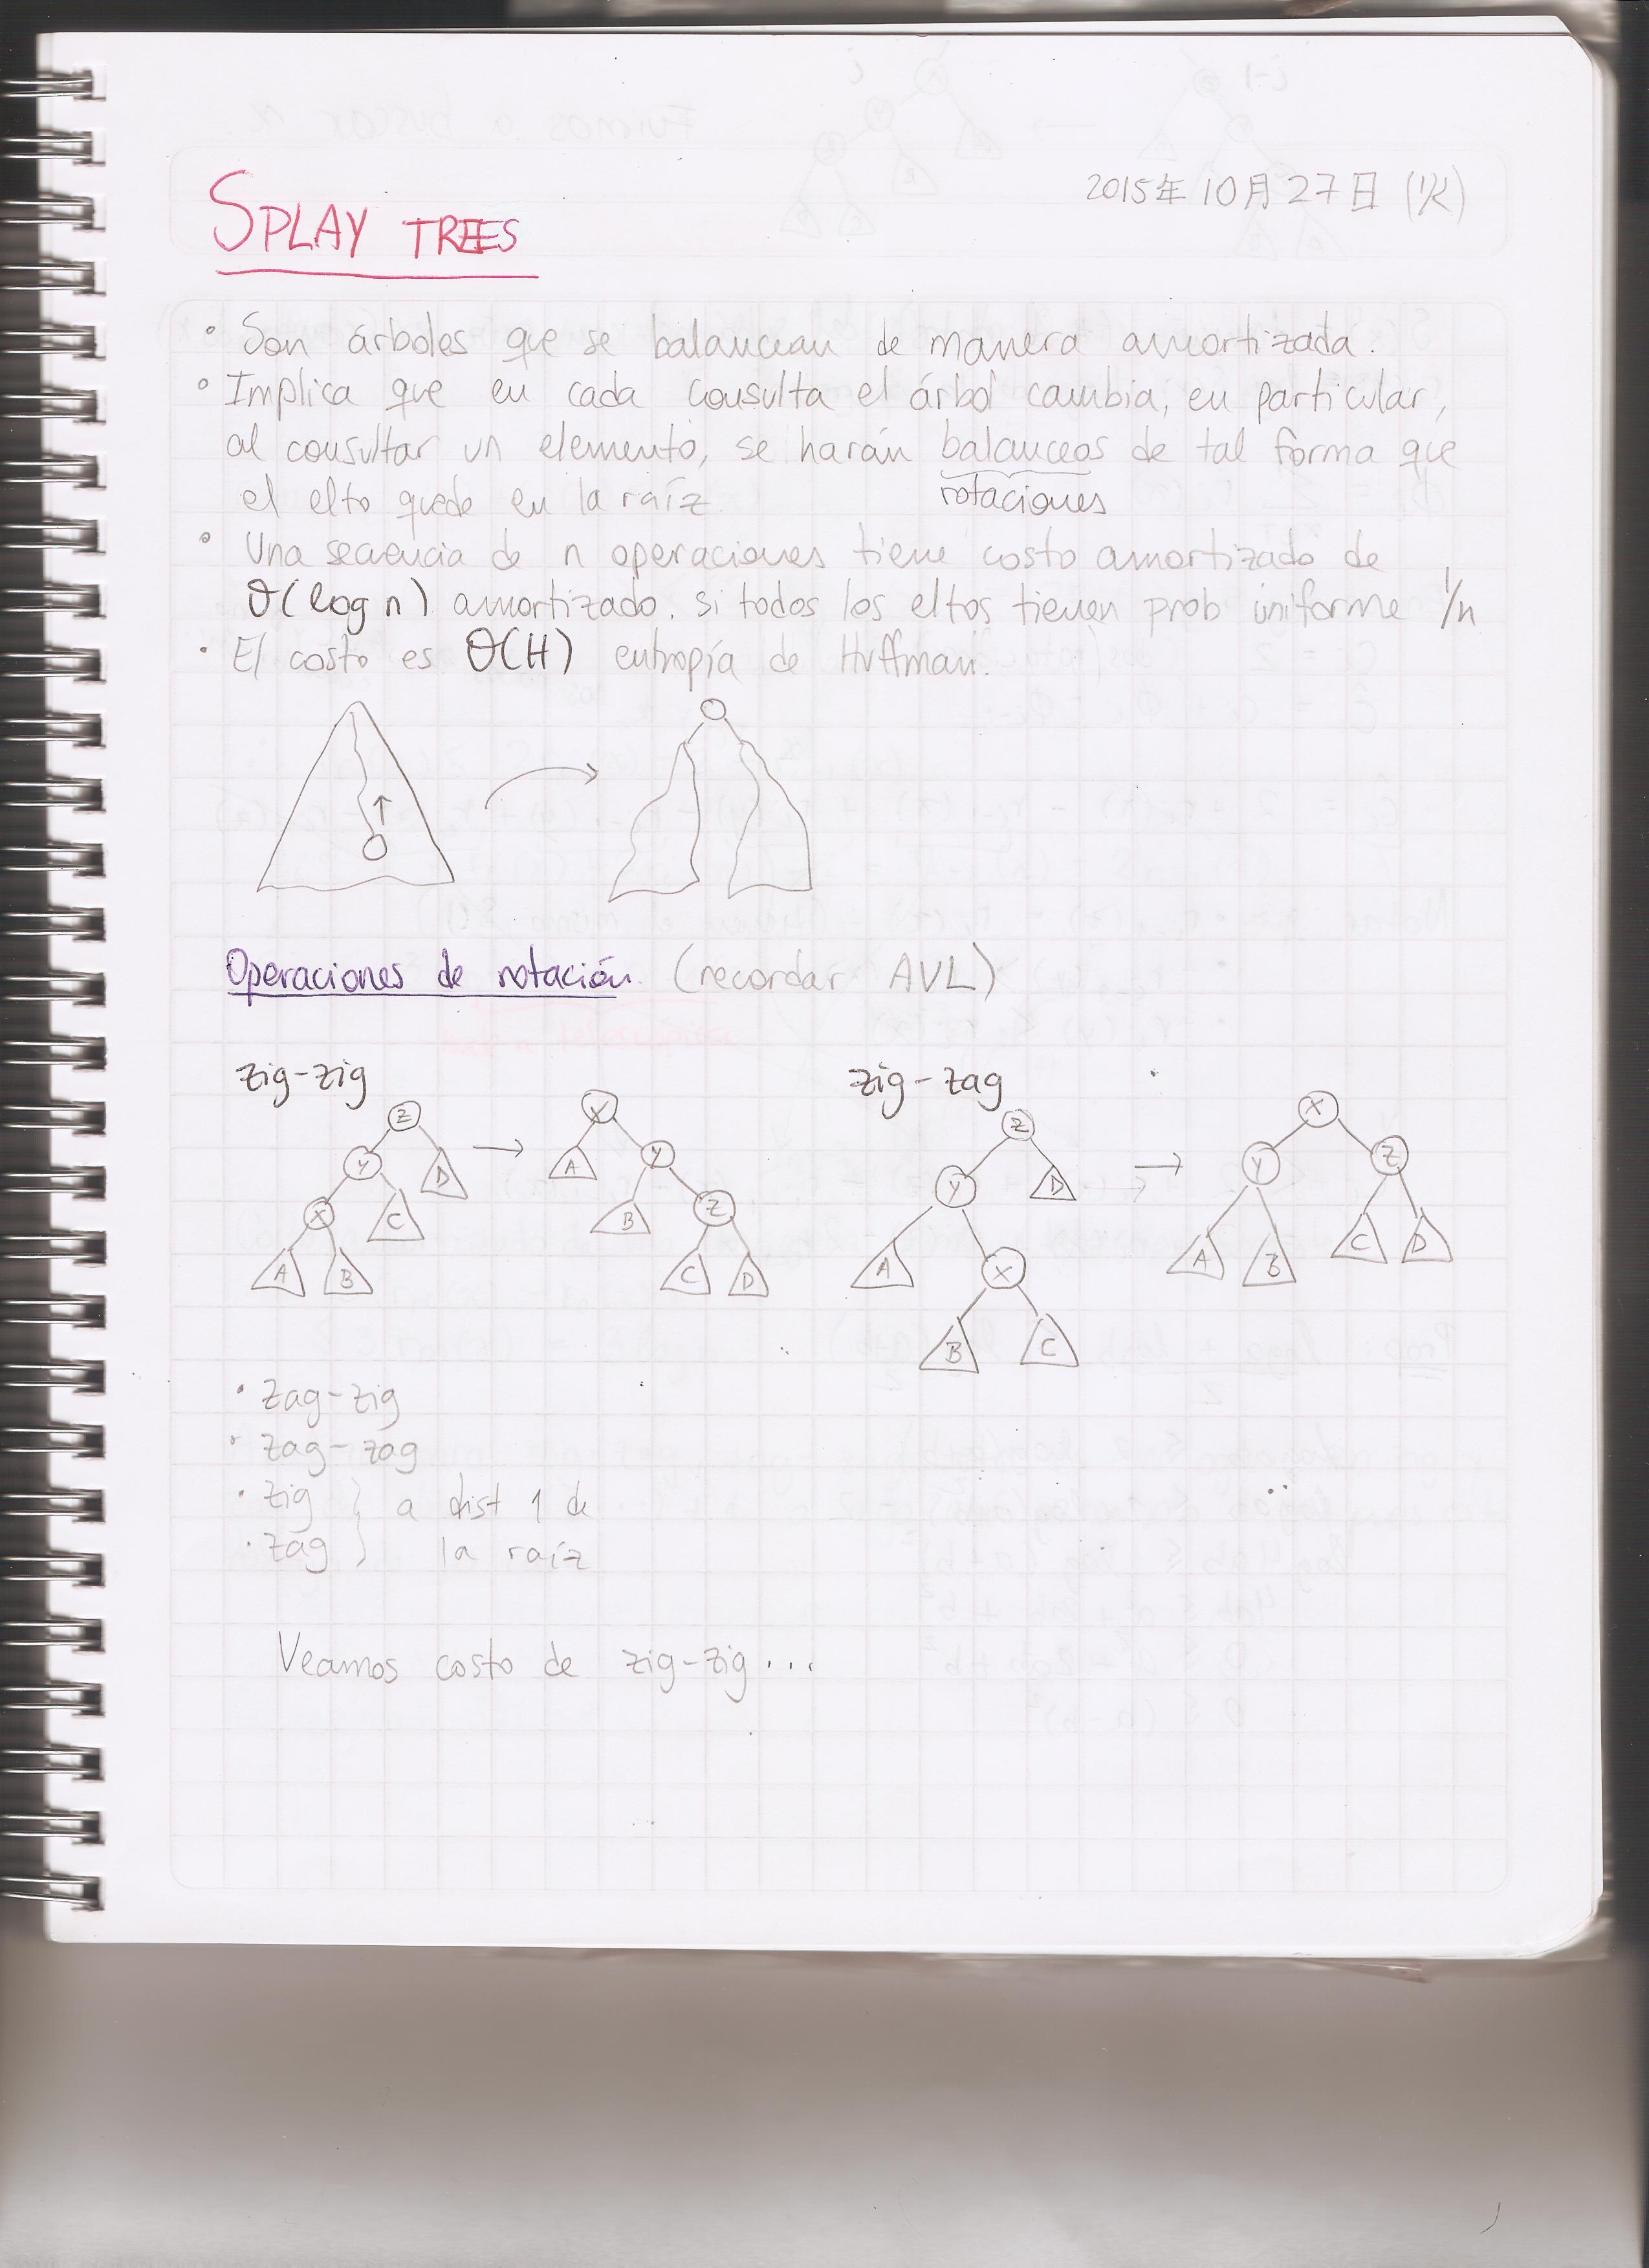 SPLAY TREES
2015年10月27日 (火)
• Son árboles que se balancean de manera amortizada.
• Implica que en cada consulta el árbol cambia, en particular,
al consultar un elemento, se harán balanceos de tal forma que
el elto quede en la raíz
rotaciones
• Una secuencia de n operaciones tiene costo amortizado de
O(log n) amortizado. si todos los eltos tienen prob uniforme 1/n
• El costo es O(H) entropía de Huffman.
Operaciones de rotación (recordar AVL)
zig-zig
Z
Y
D
X
C
A B
→
X
A
Y
B
Z
C D
zig-zag
Z
Y
D
A
X
B C
→
X
Y
Z
A B
C D
• zag-zig
• zag-zag
• zig } a dist 1 de
• zag } la raíz
Veamos costo de zig-zig...